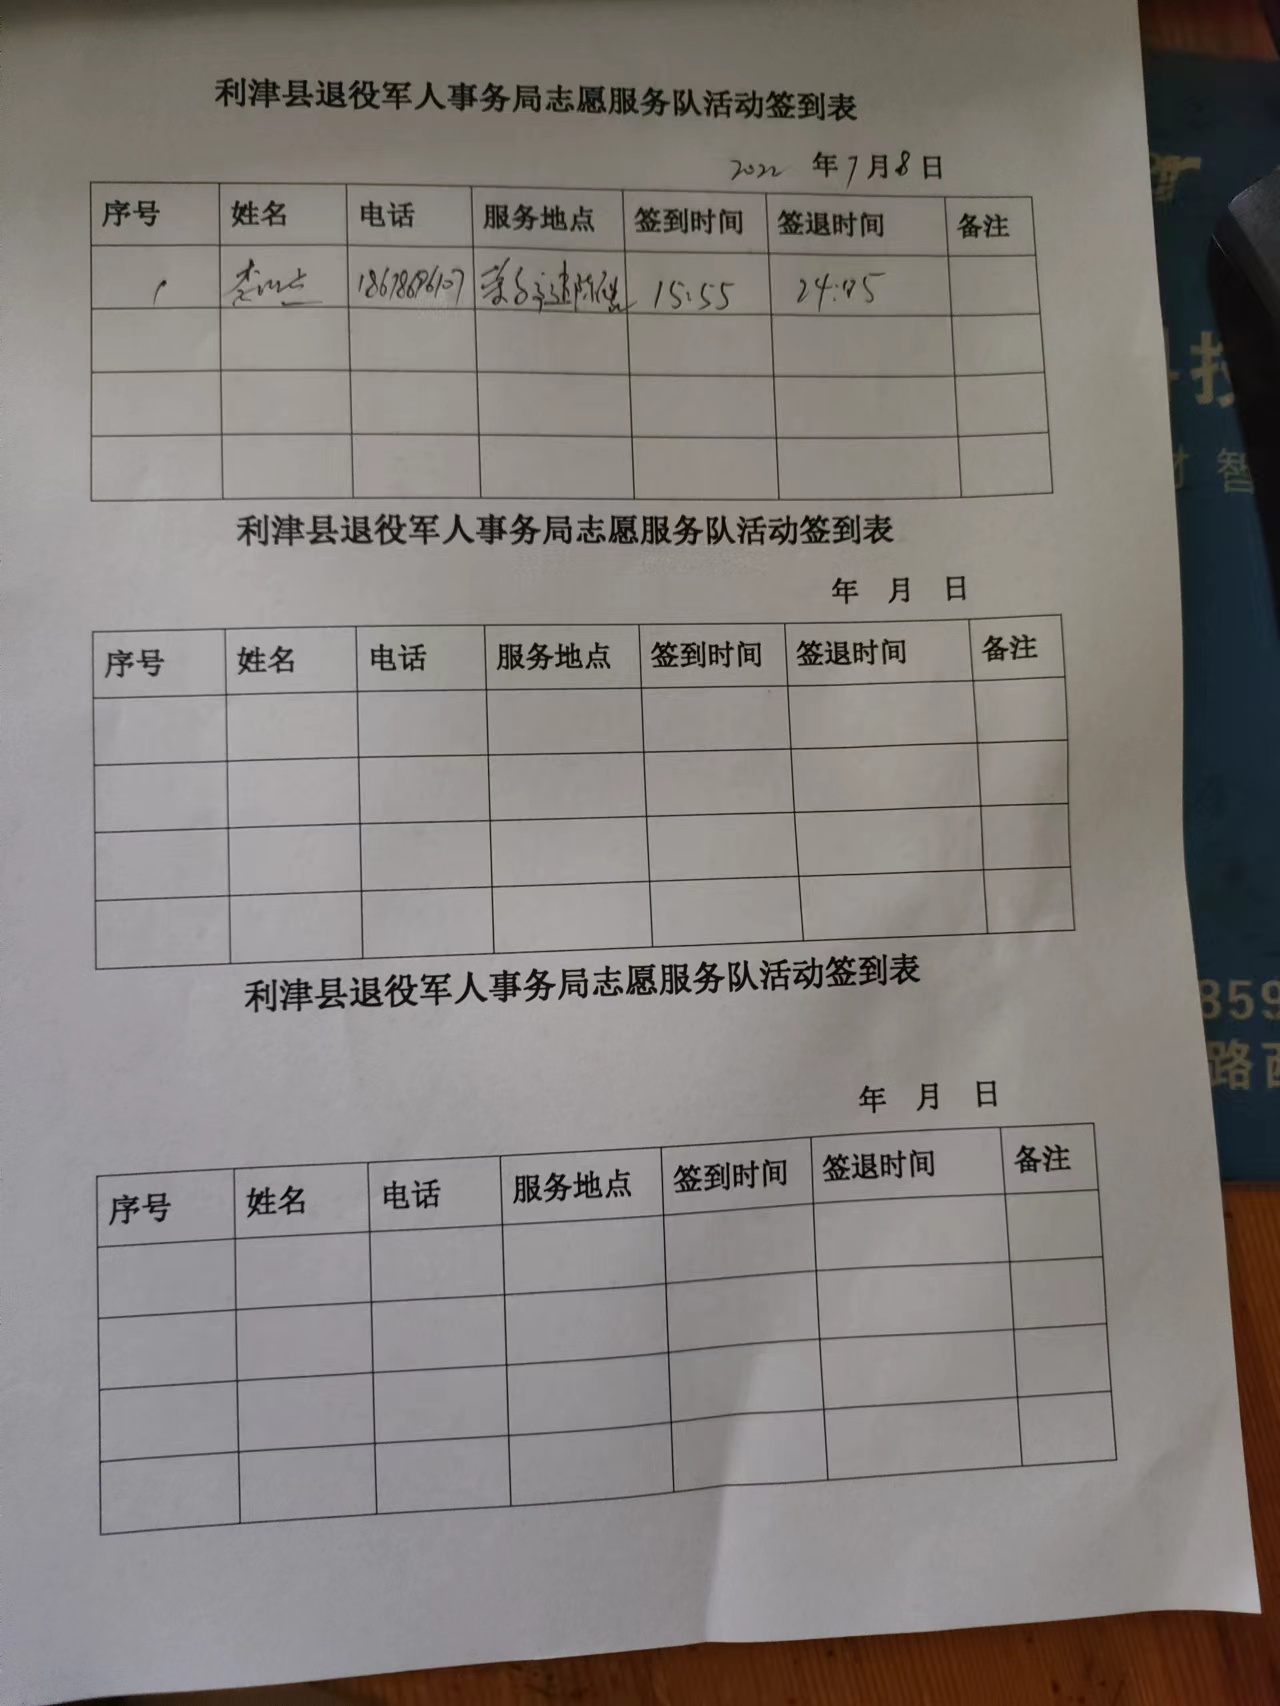 利津县退役军人事务局志愿服务队活动签到表
2022 年 7 月 8 日
序号 姓名 电话 服务地点 签到时间 签退时间 备注
1 李 15:55 24:05
利津县退役军人事务局志愿服务队活动签到表
年 月 日
序号 姓名 电话 服务地点 签到时间 签退时间 备注
利津县退役军人事务局志愿服务队活动签到表
年 月 日
序号 姓名 电话 服务地点 签到时间 签退时间 备注
智
859
路